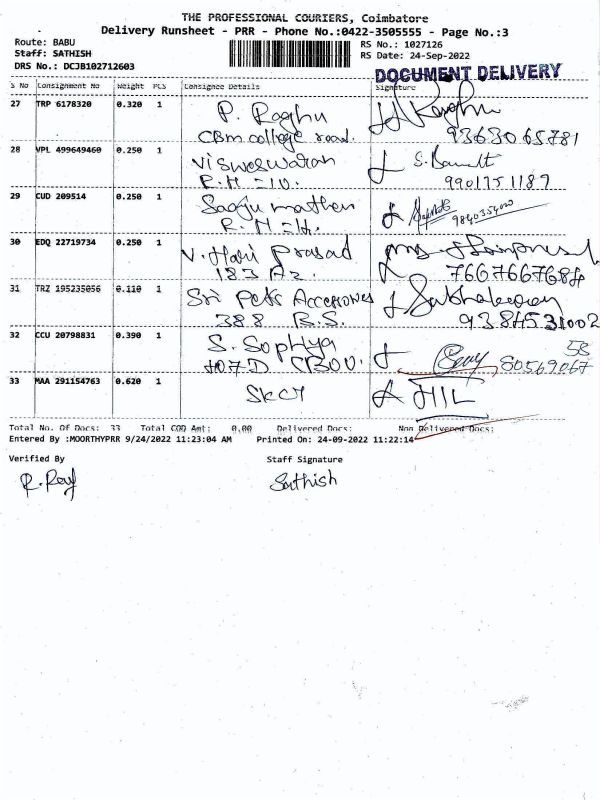 THE PROFESSIONAL COURIERS, Coimbatore
Delivery Runsheet - PRR - Phone No.:0422-3505555 - Page No.:3
Route: BABU
RS No.: 1027126
Staff: SATHISH
RS Date: 24-Sep-2022
DRS No.: DCJB102712603
DOCUMENT DELIVERY
S No Consignment No Weight PCS Consignee Details Signature
27 TRP 6178320 0.320 1 P. Raghu
CBM college road. 9363065781
28 VPL 499649460 0.250 1 Visweswaran
R.H = IU. 9901751189
29 CUD 209514 0.250 1 Saaju mathen
R.H = 9840354000
30 EDQ 22719734 0.250 1 V. Hari Prasad
183 A2. 7667667684
31 TRZ 195235056 0.110 1 Sri Pets Accessories
388 B.S. 9384531002
32 CCU 20798831 0.390 1 S. Sophiya 58
107 D CBOU. 80569067
33 MAA 291154763 0.620 1 SKCT
Total No. Of Docs: 33 Total COD Amt: 0.00 Delivered Docs: Non Delivered Docs:
Entered By :MOORTHYPRR 9/24/2022 11:23:04 AM Printed On: 24-09-2022 11:22:14
Verified By Staff Signature
R. Raj Sathish